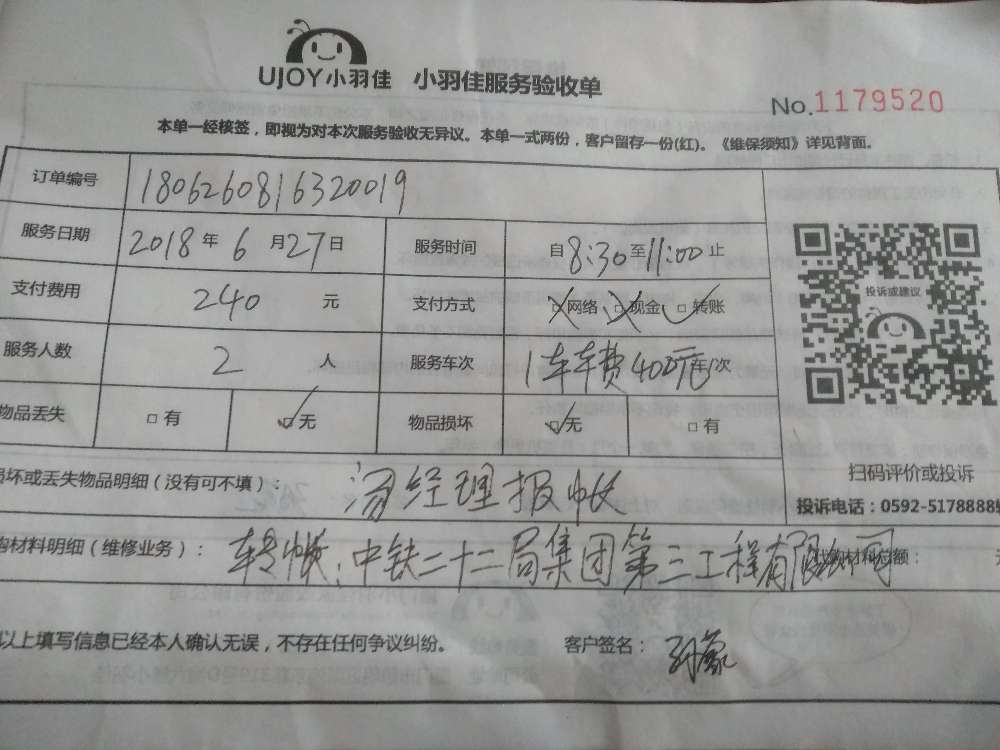 UJOY小羽佳 小羽佳服务验收单
No.1179520
本单一经核签，即视为对本次服务验收无异议。本单一式两份，客户留存一份(红)。《维保须知》详见背面。
订单编号 1806260816320019
服务日期 2018年6月27日 服务时间 自8:30至11:00止
投诉或建议
支付费用 240 元 支付方式 □网络 □现金 □转账
服务人数 2 人 服务车次 1车车费40元 车/次
物品丢失 □有 □无 物品损坏 □无 □有
扫码评价或投诉
损坏或丢失物品明细（没有可不填）： 经理报帐
投诉电话：0592-5178888
购材料明细（维修业务）： 转帐：中铁二十二局集团第三工程有限公司 代购材料总额：
以上填写信息已经本人确认无误，不存在任何争议纠纷。 客户签名：